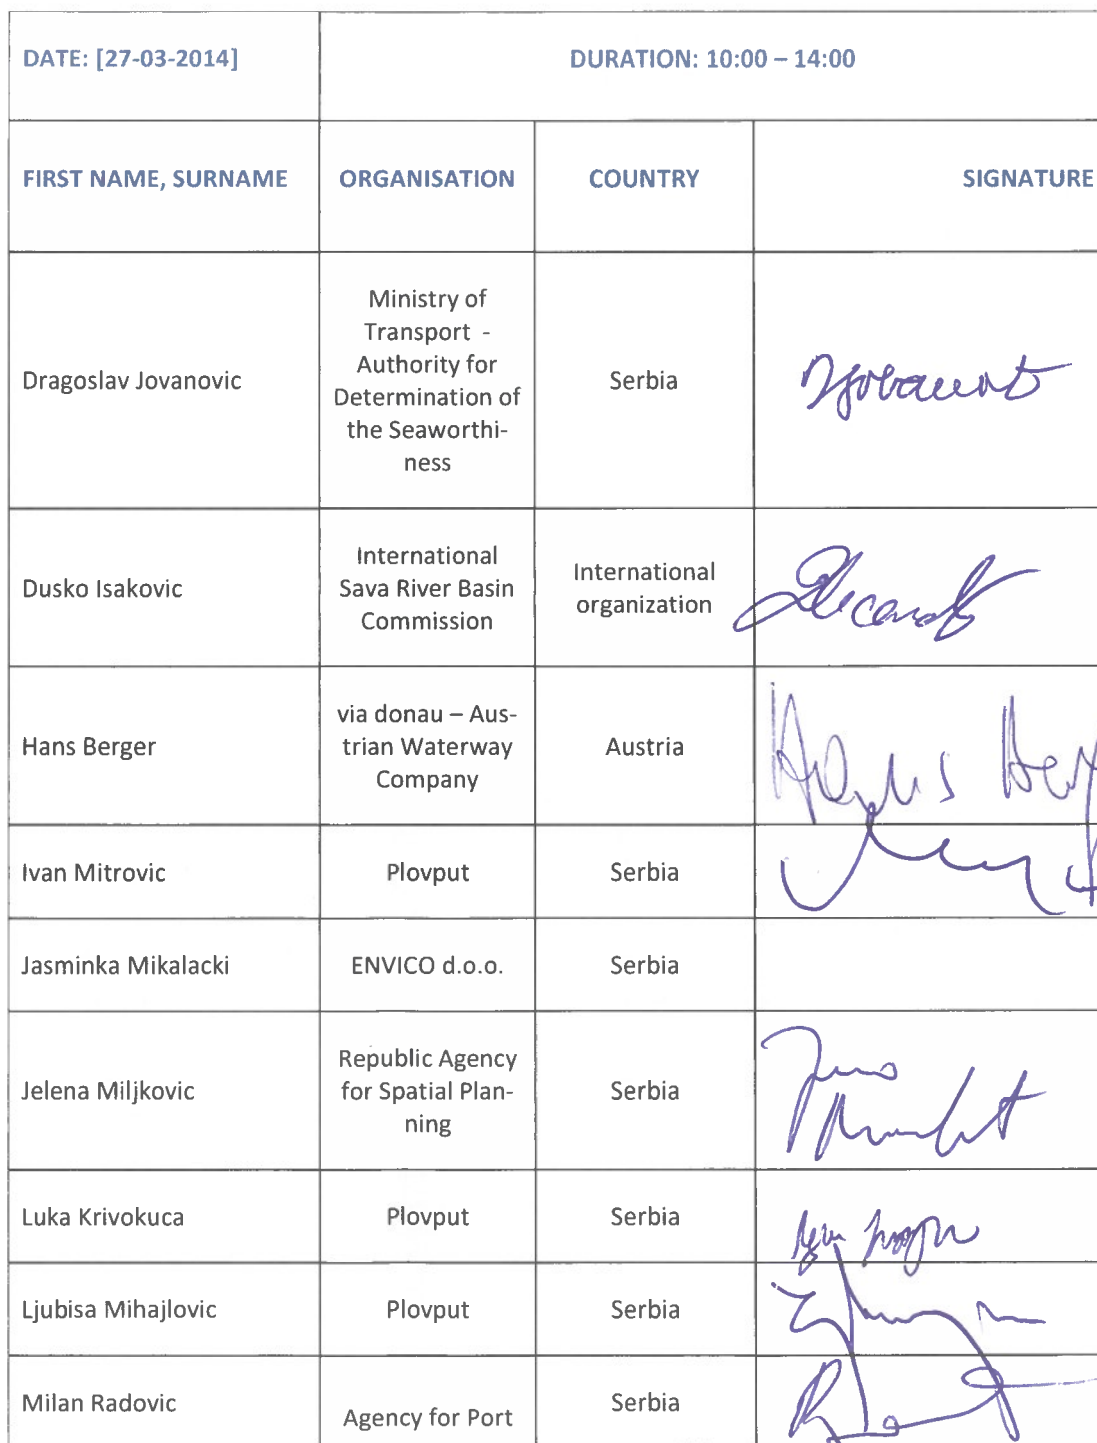 DATE: [27-03-2014]
DURATION: 10:00 – 14:00
FIRST NAME, SURNAME
ORGANISATION
COUNTRY
SIGNATURE
Dragoslav Jovanovic
Ministry of
Transport -
Authority for
Determination of
the Seaworthi-
ness
Serbia
Dusko Isakovic
International
Sava River Basin
Commission
International
organization
Hans Berger
via donau – Aus-
trian Waterway
Company
Austria
Ivan Mitrovic
Plovput
Serbia
Jasminka Mikalacki
ENVICO d.o.o.
Serbia
Jelena Miljkovic
Republic Agency
for Spatial Plan-
ning
Serbia
Luka Krivokuca
Plovput
Serbia
Ljubisa Mihajlovic
Plovput
Serbia
Milan Radovic
Agency for Port
Serbia